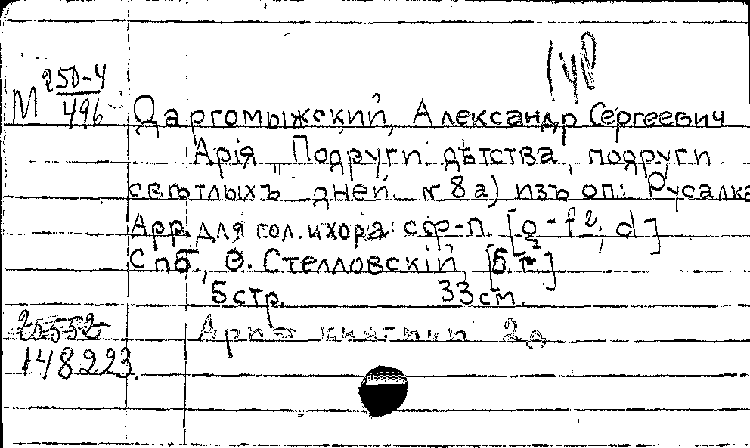 М 250-4
496
Даргомыжский, Александр Сергеевич
Арія „Подруги дѣтства, подруги
свѣтлыхъ дней № 8а) изъ оп: Русалка
Арр. для гол. и хора: с ф-п. [
Спб., Ѳ. Стелловскій, [б.г.]
5 стр. 33 см.
25552
148223.
Ария княгини 2д